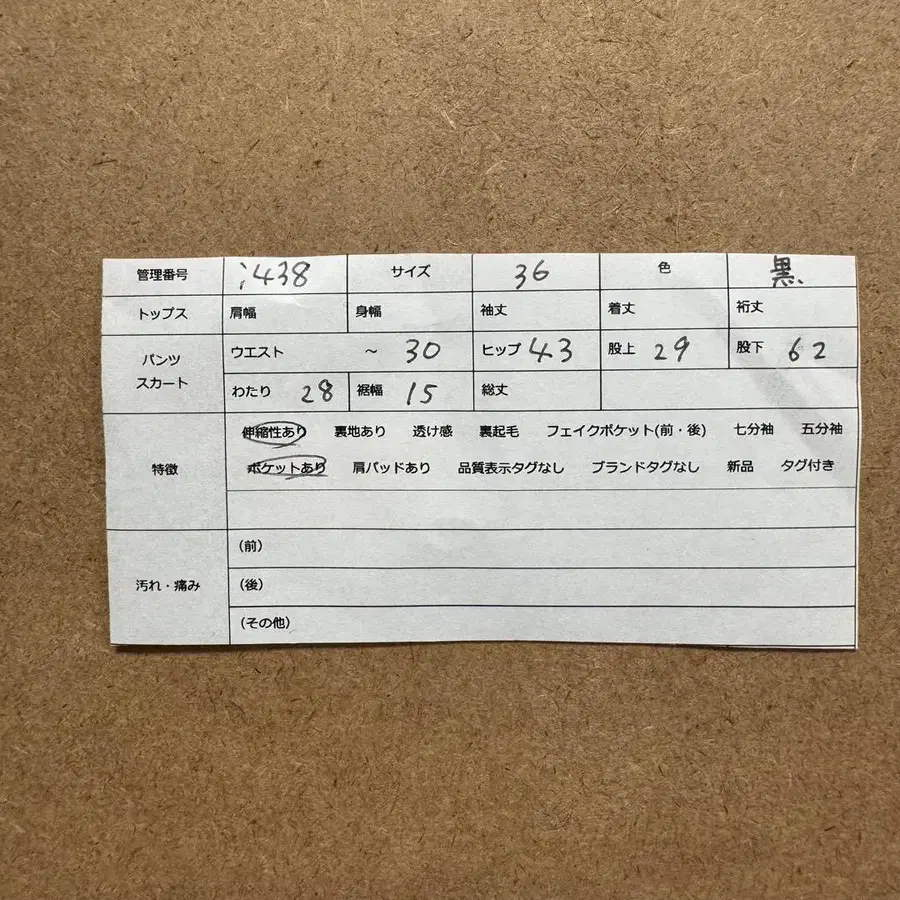 管理番号 i438 サイズ 36 色 黒
トップス 肩幅 身幅 袖丈 着丈 裄丈
パンツ スカート ウエスト ～ 30 ヒップ 43 股上 29 股下 62
わたり 28 裾幅 15 総丈
特徴 伸縮性あり 裏地あり 透け感 裏起毛 フェイクポケット(前・後) 七分袖 五分袖
ポケットあり 肩パッドあり 品質表示タグなし ブランドタグなし 新品 タグ付き
汚れ・痛み (前)
(後)
(その他)